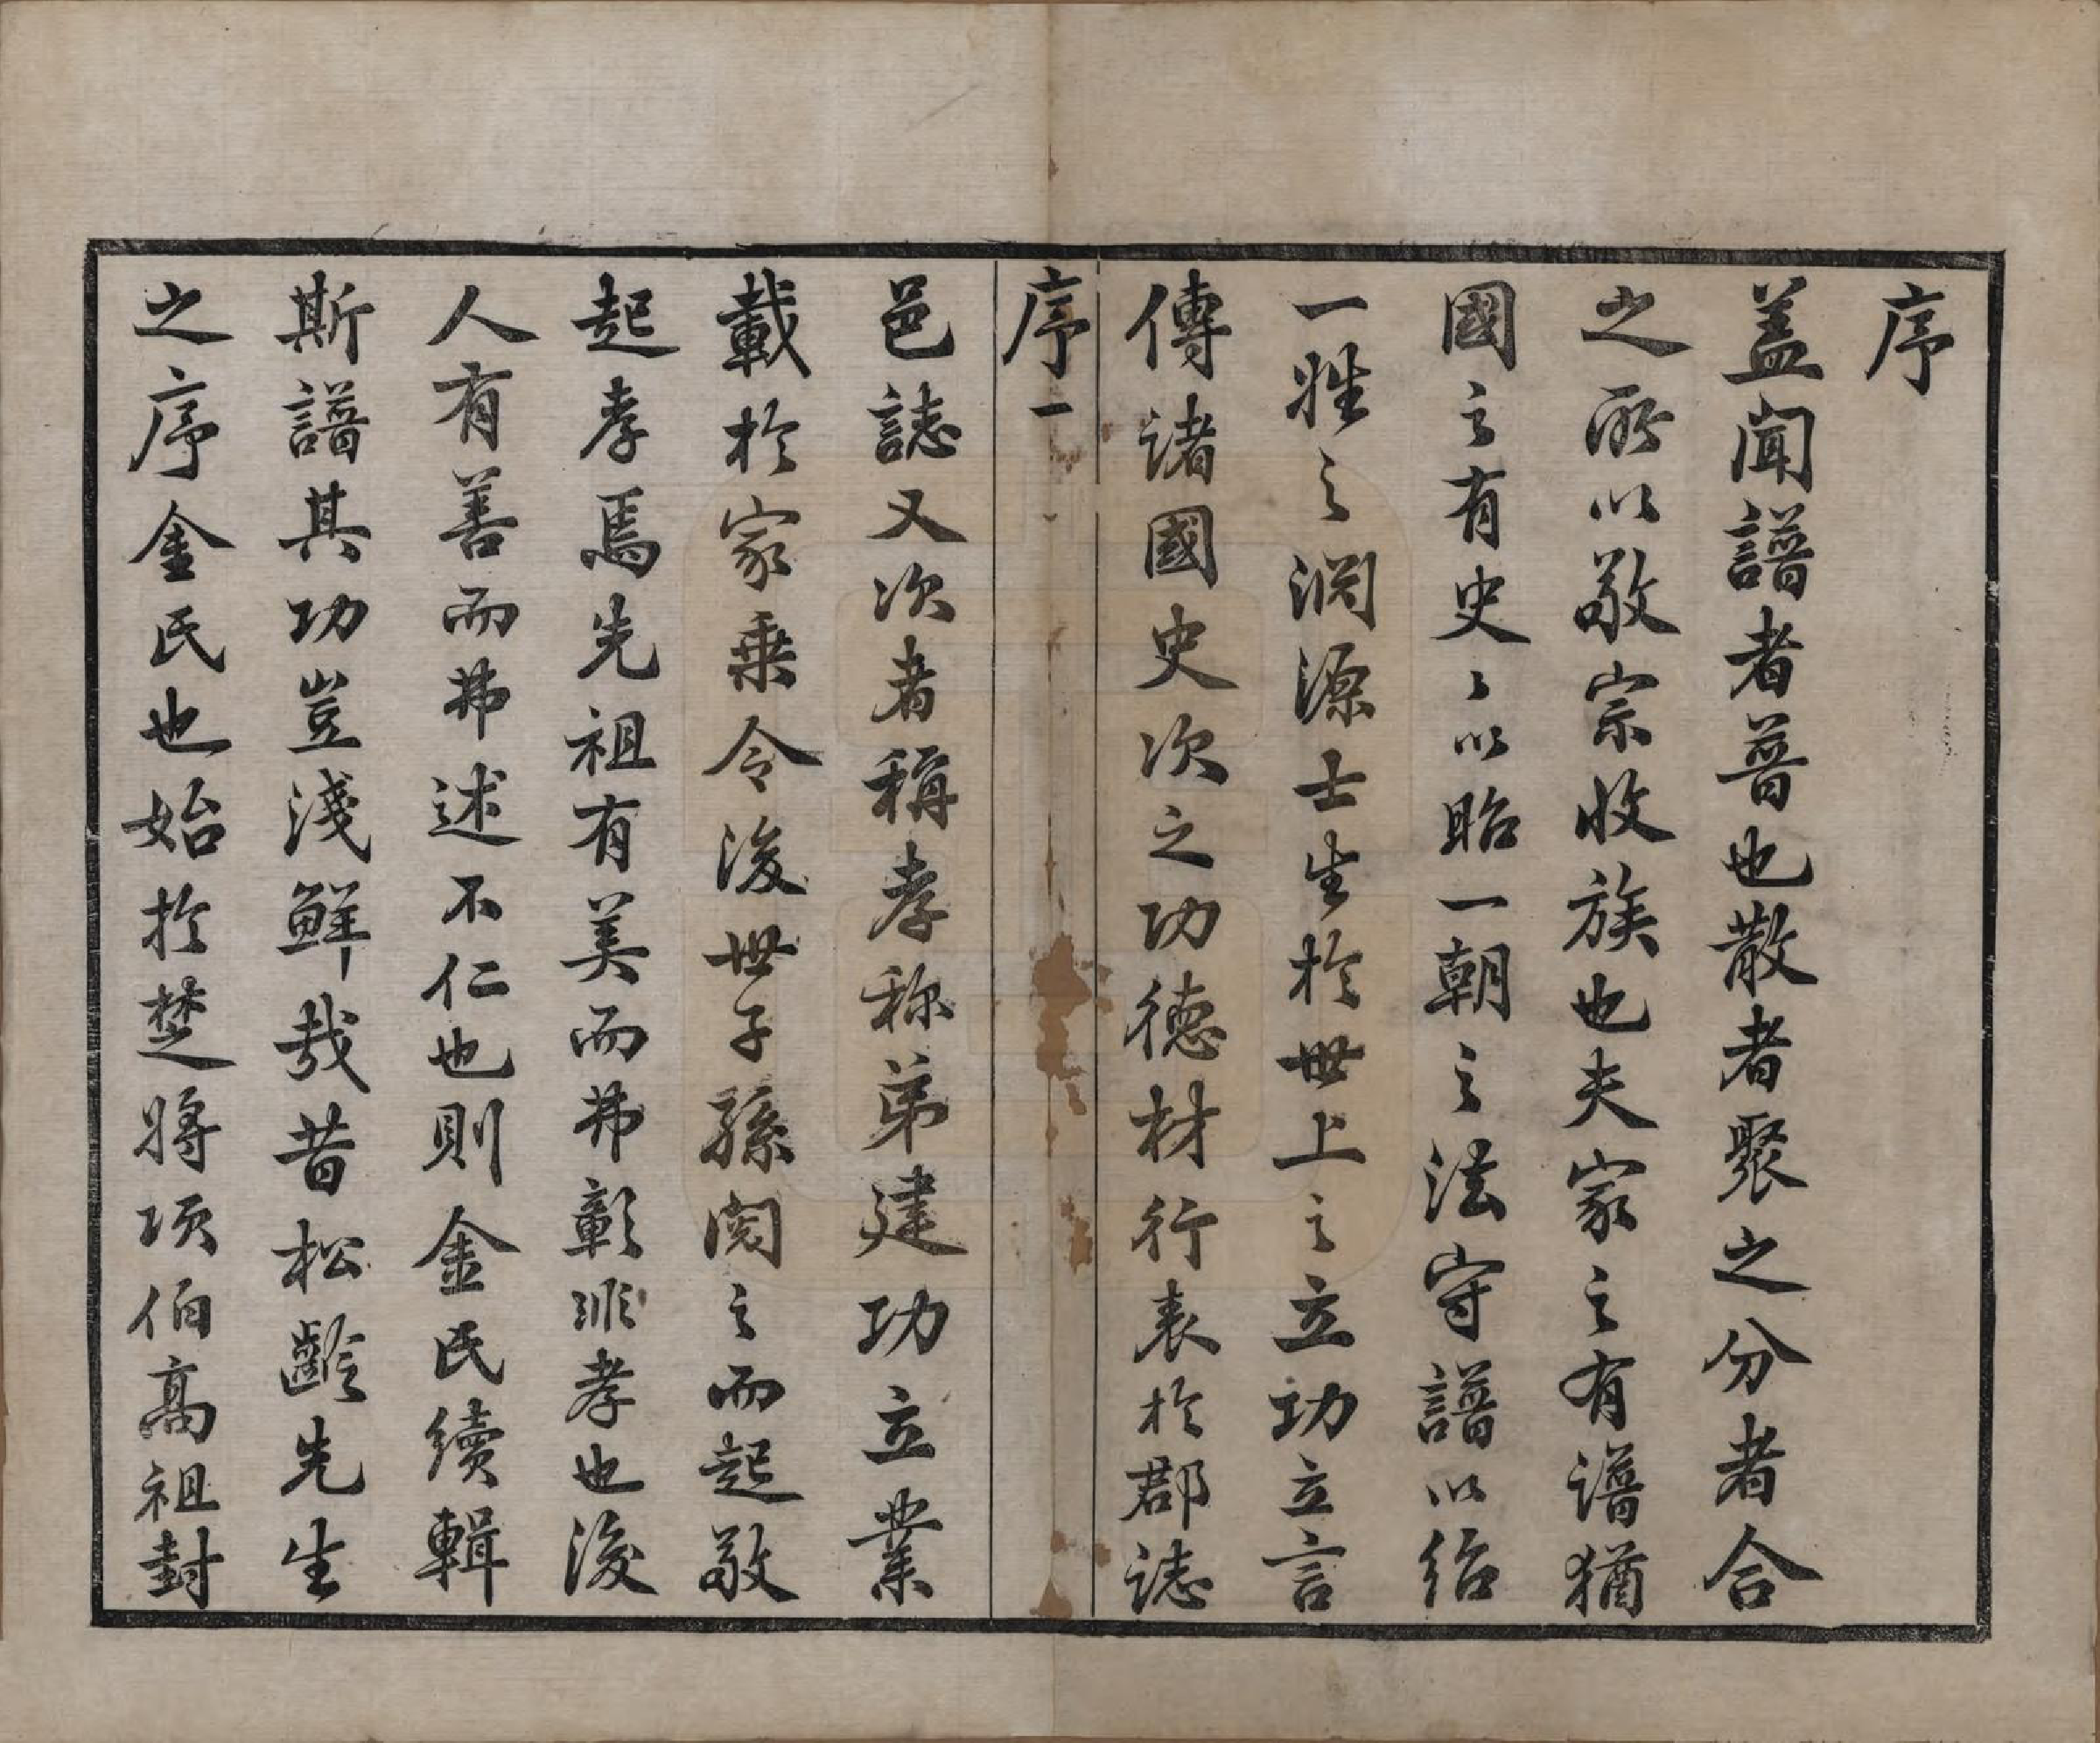 序
蓋聞譜者普也散者聚之分者合
之所以敬宗收族也夫家之有譜猶
國之有史〻以昭一朝之法守譜以紹
一姓之淵源士生於世上之立功立言
傳諸國史次之功德材行表於郡誌
序一
邑誌又次者稱孝称弟建功立業
載於家乗令後世子孫閱之而起敬
起孝焉先祖有美而弗彰非孝也後
人有善而弗述不仁也則金氏續輯
斯譜其功豈淺鮮哉昔松齡先生
之序金氏也始於楚將項伯高祖封